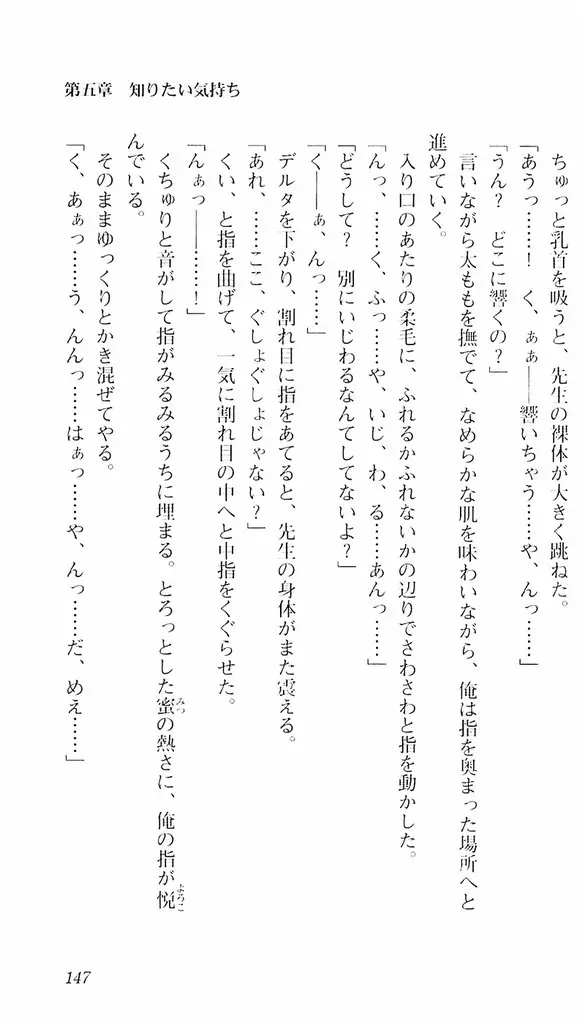 第五章　知りたい気持ち
ちゅっと乳首を吸うと、先生の裸体が大きく跳ねた。
「あうっ……！　く、ぁぁ――響いちゃう……や、んっ……」
「うん？　どこに響くの？」
言いながら太ももを撫でて、なめらかな肌を味わいながら、俺は指を奥まった場所へと
進めていく。
入り口のあたりの柔毛に、ふれるかふれないかの辺りでさわさわと指を動かした。
「んっ、……く、ふっ……や、いじ、わ、る……あんっ……」
「どうして？　別にいじわるなんてしてないよ？」
「く――ぁ、んっ……」
デルタを下がり、割れ目に指をあてると、先生の身体がまた震える。
「あれ、……ここ、ぐしょぐしょじゃない？」
くい、と指を曲げて、一気に割れ目の中へと中指をくぐらせた。
「んぁっ――……！」
くちゅりと音がして指がみるみるうちに埋まる。とろっとした蜜の熱さに、俺の指が悦
んでいる。
そのままゆっくりとかき混ぜてやる。
「く、あぁっ……う、んんっ……はぁっ……や、んっ……だ、めぇ……」
147